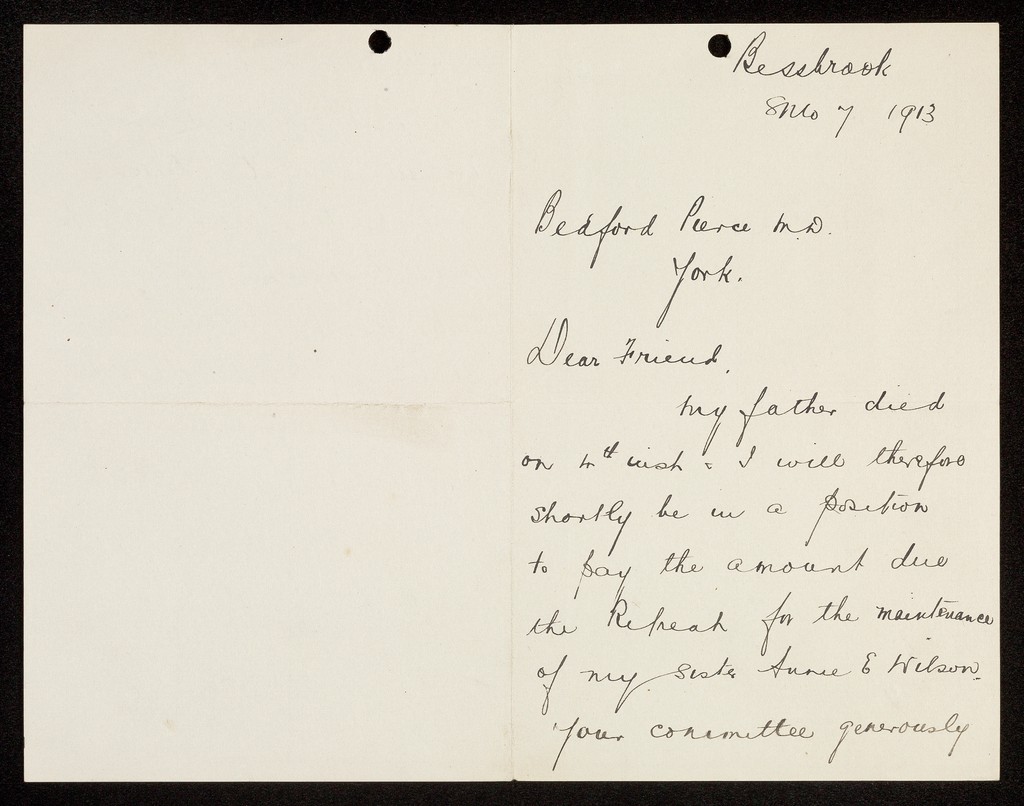 Bessbrook
8 Mo 7 1913
Bedford Pierce M.D.
York.
Dear Friend,
My father died
on 4th inst & I will therefore
shortly be in a position
to pay the amount due
the Retreat for the maintenance
of my sister Annie E Wilson.
Your committee generously